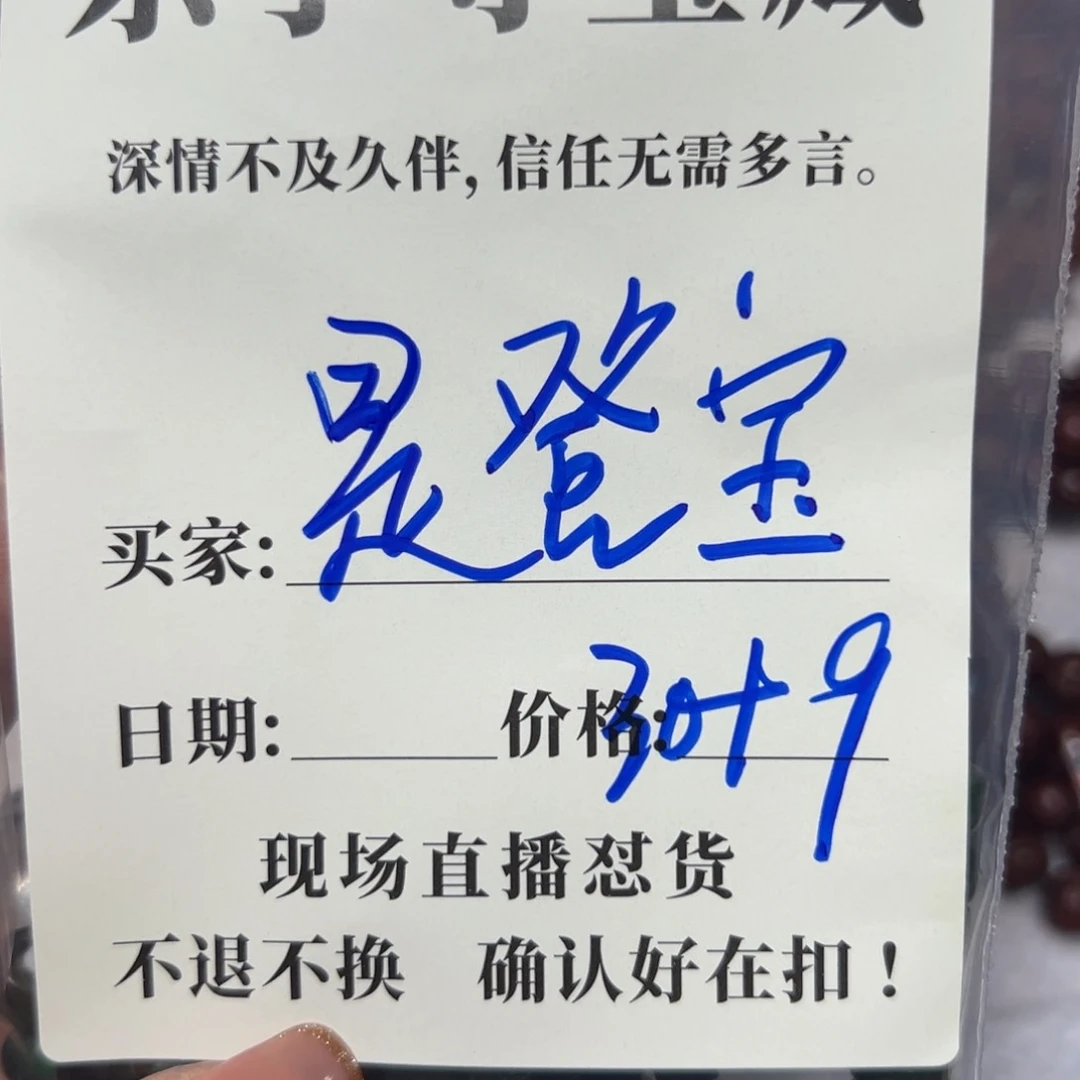 深情不及久伴,信任无需多言。
买家:是餐宝
日期: 价格:30+9
现场直播怼货
不退不换 确认好在扣!